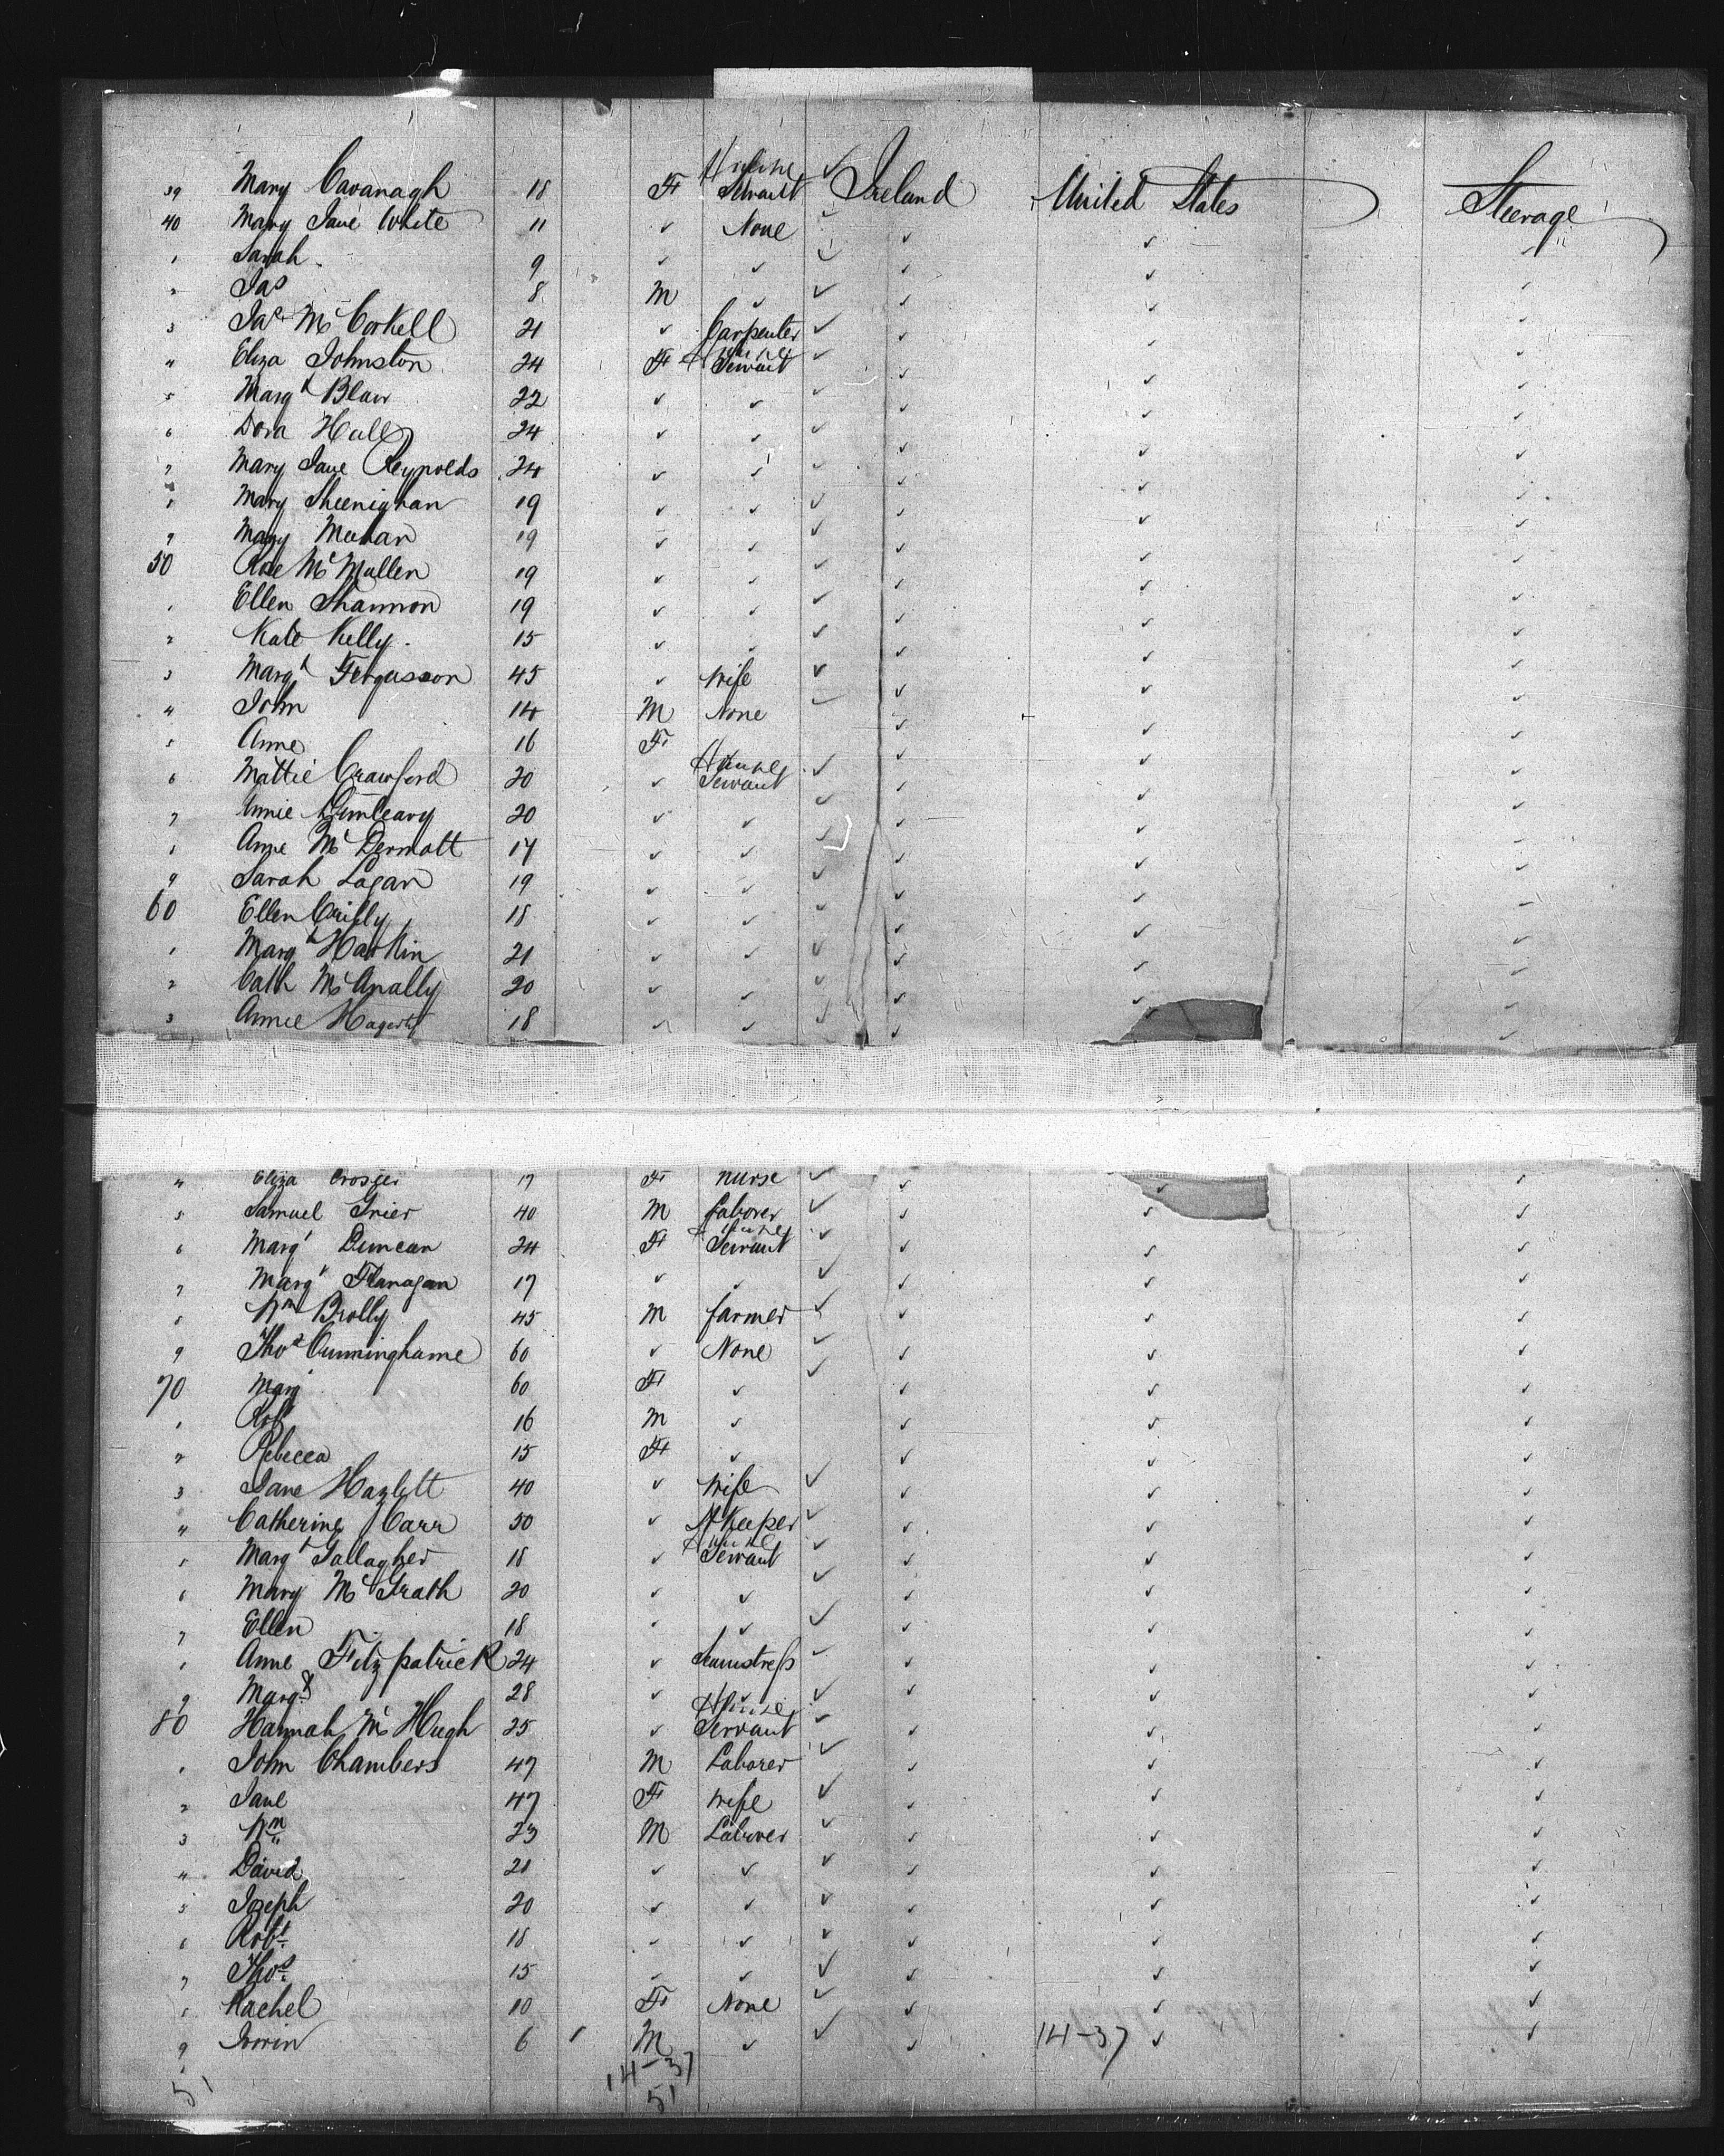 39 Mary Cavanagh 18 F House Servant ✓ Ireland United States Steerage
40 Mary Jane White 11 ✓ None ✓ ✓ ✓
1 Sarah 9 ✓ ✓ ✓ ✓ ✓
2 Jas 8 M ✓ ✓ ✓ ✓ ✓
3 Jas McCorkell 21 ✓ Carpenter ✓ ✓ ✓ ✓
4 Eliza Johnston 24 F House Servant ✓ ✓ ✓ ✓
5 Margt Blair 22 ✓ ✓ ✓ ✓ ✓ ✓
6 Dora Hall 24 ✓ ✓ ✓ ✓ ✓ ✓
7 Mary Jane Reynolds 24 ✓ ✓ ✓ ✓ ✓ ✓
8 Mary Sheenighan 19 ✓ ✓ ✓ ✓ ✓ ✓
9 Mary 19 ✓ ✓ ✓ ✓ ✓ ✓
50 McMullen 19 ✓ ✓ ✓ ✓ ✓ ✓
1 Ellen Shannon 19 ✓ ✓ ✓ ✓ ✓ ✓
2 Kate Kelly 15 ✓ ✓ ✓ ✓ ✓ ✓
3 Margt Fergusson 45 ✓ Wife ✓ ✓ ✓ ✓
4 John 14 M None ✓ ✓ ✓ ✓
5 Anne 16 F ✓ ✓ ✓
6 Mattie Crawford 20 ✓ House Servant ✓ ✓ ✓ ✓
7 Annie 20 ✓ ✓ ✓ ✓ ✓ ✓
8 Anne McDermott 17 ✓ ✓ ✓ ✓ ✓ ✓
9 Sarah Logan 19 ✓ ✓ ✓ ✓ ✓ ✓
60 Ellen Crilly 18 ✓ ✓ ✓ ✓ ✓ ✓
1 Margt Harkin 21 ✓ ✓ ✓ ✓ ✓ ✓
2 Cath McAnally 20 ✓ ✓ ✓ ✓ ✓ ✓
3 Annie Hagerty 18 ✓ ✓ ✓ ✓ ✓ ✓
4 Eliza Crosier 17 F Nurse ✓ ✓ ✓ ✓
5 Samuel Grier 40 M Laborer ✓ ✓ ✓ ✓
6 Margt Duncan 24 F House Servant ✓ ✓ ✓ ✓
7 Margt Flanagan 17 ✓ ✓ ✓ ✓ ✓ ✓
8 Wm Brolly 45 M farmer ✓ ✓ ✓ ✓
9 Thos Cunninghame 60 ✓ None ✓ ✓ ✓ ✓
70 Margt 60 F ✓ ✓ ✓ ✓ ✓
1 Robt 16 M ✓ ✓ ✓ ✓
2 Rebecca 15 F ✓ ✓ ✓ ✓
3 Jane Hazlett 40 ✓ Wife ✓ ✓ ✓ ✓
4 Catherine Carr 50 ✓ H Keeper ✓ ✓ ✓ ✓
5 Margt Gallagher 18 ✓ House Servant ✓ ✓ ✓ ✓
6 Mary McGrath 20 ✓ ✓ ✓ ✓ ✓ ✓
7 Ellen 18 ✓ ✓ ✓ ✓ ✓ ✓
8 Anne Fitzpatrick 24 ✓ Seamstress ✓ ✓ ✓ ✓
9 Margt 28 ✓ ✓ ✓ ✓ ✓ ✓
80 Hannah McHugh 25 ✓ House Servant ✓ ✓ ✓ ✓
1 John Chambers 47 M Laborer ✓ ✓ ✓ ✓
2 Jane 47 F Wife ✓ ✓ ✓ ✓
3 Wm 23 M Laborer ✓ ✓ ✓ ✓
4 David 21 ✓ ✓ ✓ ✓ ✓ ✓
5 Joseph 20 ✓ ✓ ✓ ✓ ✓ ✓
6 Robt 18 ✓ ✓ ✓ ✓ ✓ ✓
7 Thos 15 ✓ ✓ ✓ ✓ ✓ ✓
8 Rachel 10 F None ✓ ✓ ✓ ✓
9 Irwin 6 M ✓ ✓ ✓ 14-37 ✓ ✓
14-37
51 51